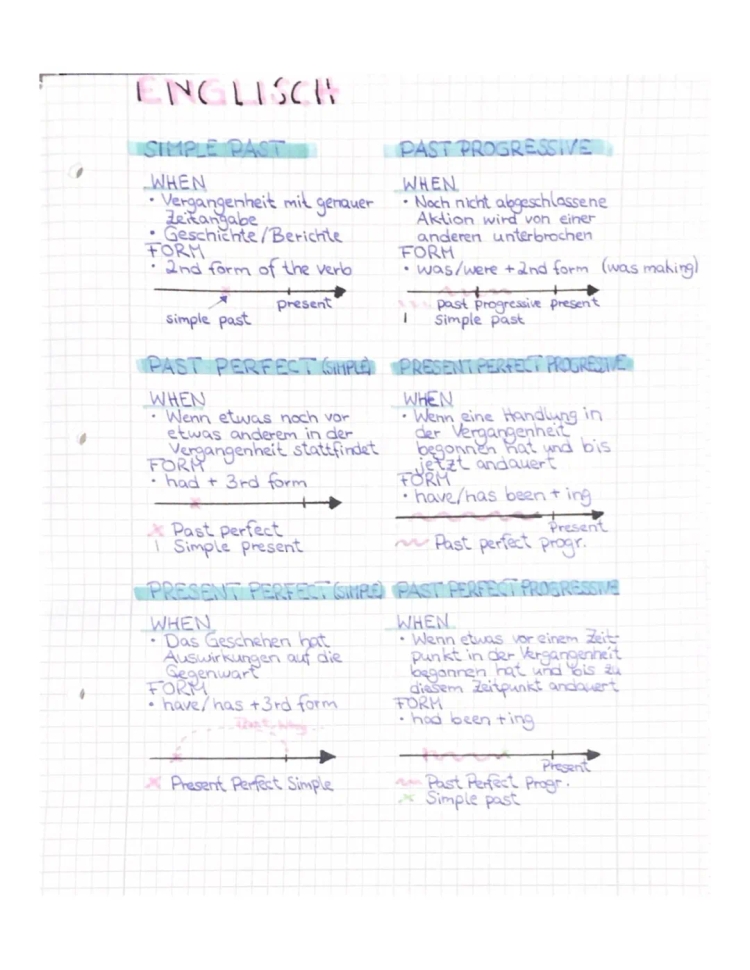 ENGLISCH
SIMPLE PAST
WHEN
• Vergangenheit mit genauer
Zeitangabe
• Geschichte/Berichte
FORM
• 2nd form of the verb
present
simple past
PAST PROGRESSIVE
WHEN
• Noch nicht abgeschlossene
Aktion wird von einer
anderen unterbrochen
FORM
• was/were + 2nd form (was making)
past progressive present
| simple past
PAST PERFECT (SIMPLE)
WHEN
• Wenn etwas noch vor
etwas anderem in der
Vergangenheit stattfindet
FORM
• had + 3rd form
x Past perfect
| Simple present
PRESENT PERFECT PROGRESSIVE
WHEN
• Wenn eine Handlung in
der Vergangenheit
begonnen hat und bis
jetzt andauert
FORM
• have/has been + ing
Present
Past perfect progr.
PRESENT PERFECT (SIMPLE)
WHEN
• Das Geschehen hat
Auswirkungen auf die
Gegenwart
FORM
• have/has +3rd form
x Present Perfect Simple
PAST PERFECT PROGRESSIVE
WHEN
• Wenn etwas vor einem Zeit-
punkt in der Vergangenheit
begonnen hat und bis zu
diesem Zeitpunkt andauert
FORM
• had been +ing
Present
Past Perfect Progr.
x Simple past